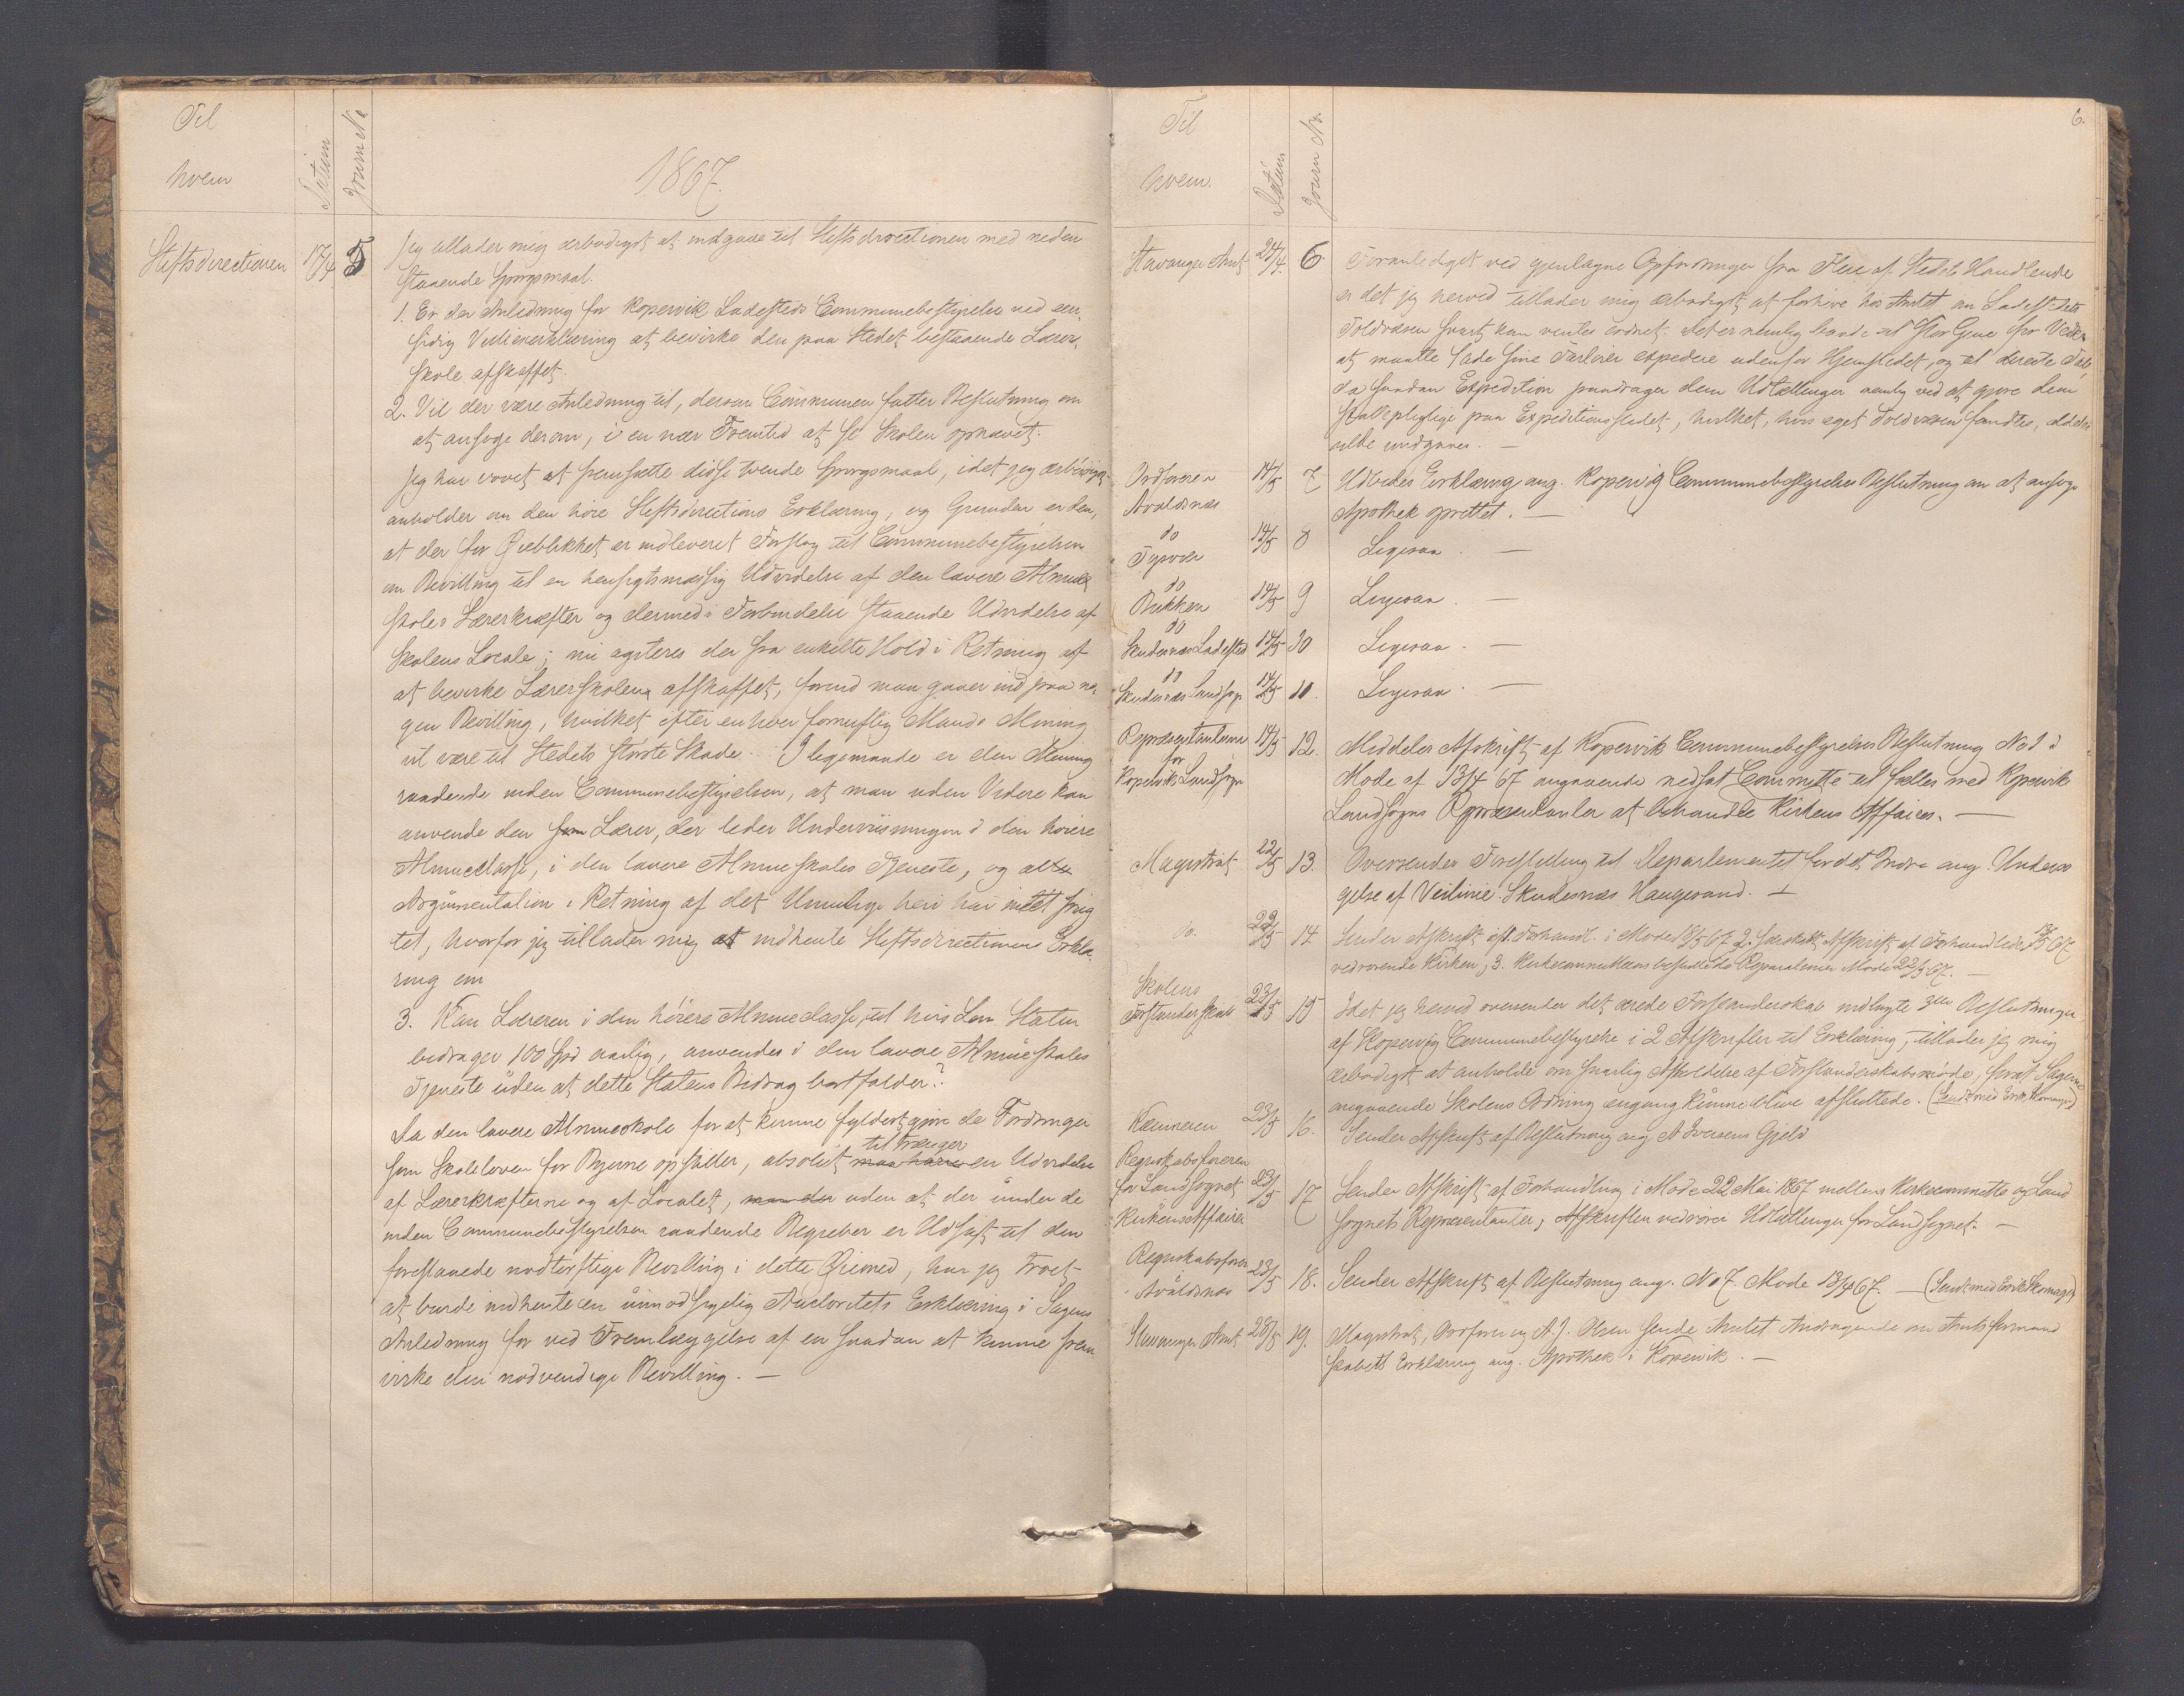 Til
hvem
Datum
Journ No
1867.
Stiftsdirectionen 17/4 5 Jeg tillader mig ærbødigst at indgaae til Stiftsdirectionen med neden
staaende Spørgsmaal.
1. Er der Anledning for Kopervik Ladesteds Communebestyrelse ved een
sidig Villieserklæring at bevirke den paa Stedet bestaaende Lærer
skole afskaffet.
2. Vil der være Anledning til, dersom Communen fatter Beslutning om
at ansøge derom, i en nær Fremtid at se Skolen ophævet.
Jeg har vovet at fremsætte disse tvende Spørgsmaal, idet jeg ærbødigst
anholder om den høie Stiftsdirections Erklæring, og Grunden er den,
at der for Øieblikket er indleveret Forslag til Communebestyrelsen
om Bevilling til en hensigtsmæssig Udvidelse af den lavere Almue
skoles Lærerkræfter og dermed i Forbindelse staaende Udvidelse af
Skolens Locale; nu agiteres der fra enkelte Hold i Retning af
at bevirke Lærerskolen afskaffet, forend man gaaer ind paa no
gen Bevilling, hvilket efter enhver fornuftig Mands Mening
vil være til Stedets største Skade. I ligemaade er den Mening
raadende inden Communebestyrelsen, at man uden Videre kan
anvende den Lærer, der leder Underviisningen i den høiere
Almueclasse, i den lavere Almueskoles Tjeneste, og al
Argumentation i Retning af det Umulige heri har intet frug
tet, hvorfor jeg tillader mig at indhente Stiftsdirectionens Erklæ
ring om
3. Kan Læreren i den høiere Almueclasse, til hvis Løn Staten
bidrager 100 Spd aarlig, anvendes i den lavere Almueskoles
Tjeneste uden at dette Statens Bidrag bortfalder?
Da den lavere Almueskole for at kunne fyldestgjøre de Fordringer
som Skoleloven for Byerne opstiller, absolut maa have tiltrænger en Udvidelse
af Lærerkræfterne og af Localet, uden at der under de
inden Communebestyrelsen raadende Begreber er Udsigt til den
forestaaende nødtørftige Bevilling i dette Øiemed, har jeg troet
at burde indhente en uimodsigelig Autoritets Erklæring i Sagens
Anledning for ved Fremlæggelse af en saadan at kunne frem
virke den nødvendige Bevilling. —
6.
Til
hvem.
Datum
Journ No.
Stavanger Amt 24/4. 6. Foranlediget ved gjentagne Opfordringer fra Flere af Stedets Handlende
er det jeg herved tillader mig ærbødigst at forhøre hos Amtet om Ladestedets
Toldvæsen snart kan ventes ordnet. Det er nemlig til stor Gene for
at maatte lade sine Fartøier expedere udenfor Hjemstedet, og et directe Tab,
da saadan Expedition paadrager dem Udtællinger nemlig ved at gjøre dem
pligtige paa Expeditionsstedet, hvilket, hvis eget Toldvæsen fandtes, aldeles
vilde undgaaes. —
Ordføreren
Avaldsnæs 14/5 7 Udbedes Erklæring ang. Kopervig Communebestyrelses Beslutning om at ansøge
Apothek oprettet. —
do
Tysvær 14/5 8 Ligesaa. —
do
Bukken 14/5 9 Ligesaa. —
do
Skudesnæs Ladested 14/5 10 Ligesaa. —
do
Skudesnæs Landsogn 14/5 11. Ligesaa. —
Repræsentanterne
for
Kopervik Landsogn 14/5 12. Meddeler Afskrift af Kopervik Communebestyrelses Beslutning No 1 i
Møde af 13/4 67 angaaende nedsat Committe til fælles med Kopervik
Landsogns Repræsentanter at behandle Kirkens Affairer. —
Magistrat 22/5 13. Oversender Forestilling til Departementet for det Indre ang. Undersø
gelse af Veilinie Skudesnæs Haugesund.
do. 22/5 14 Sender Afskrift af Forhandl. i Møde 18/5 67 2. særskilt Afskrift af Forhandl
vedrørende Kirken, 3. Kirkecommitteens besluttede Reparationer Møde 22/5 67. —
Skolens
Forstanderskab 23/5 15 Idet jeg herved oversender det ærede Forstanderskab indlagte 3de Beslutninger
af Kopervig Communebestyrelse i 2 Afskrifter til Erklæring, tillader jeg mig
ærbødigst at anholde om snarlig Afholdelse af Forstanderskabsmøde, forat Sagerne
angaaende Skolens Ordning engang kunne blive afsluttede. (Sendt med Erik Skomager)
Kæmneren 23/5 16. Sender Afskrift af Beslutning ang A Iversens Gjeld
Regnskabsføreren
for Landsognet
Kirkens Affairer 23/5 17 Sender Afskrift af Forhandling i Møde 22 Mai 1867 mellem Kirkecommitte og Land
sognets Repræsentanter, Afskriften vedrører Udtællinger for Landsognet. —
Regnskabsfører
Avaldsnæs 23/5 18. Sender Afskrift af Beslutning ang. No 7 Møde 13/4 67. — (Sendt med Erik Skomager)
Stavanger Amt 28/5 19. Magistrat, Ordfører og A. J. Olsen sende Amtet Andragende om Amtsformand
skabets Erklæring ang. Apothek i Kopervik. —